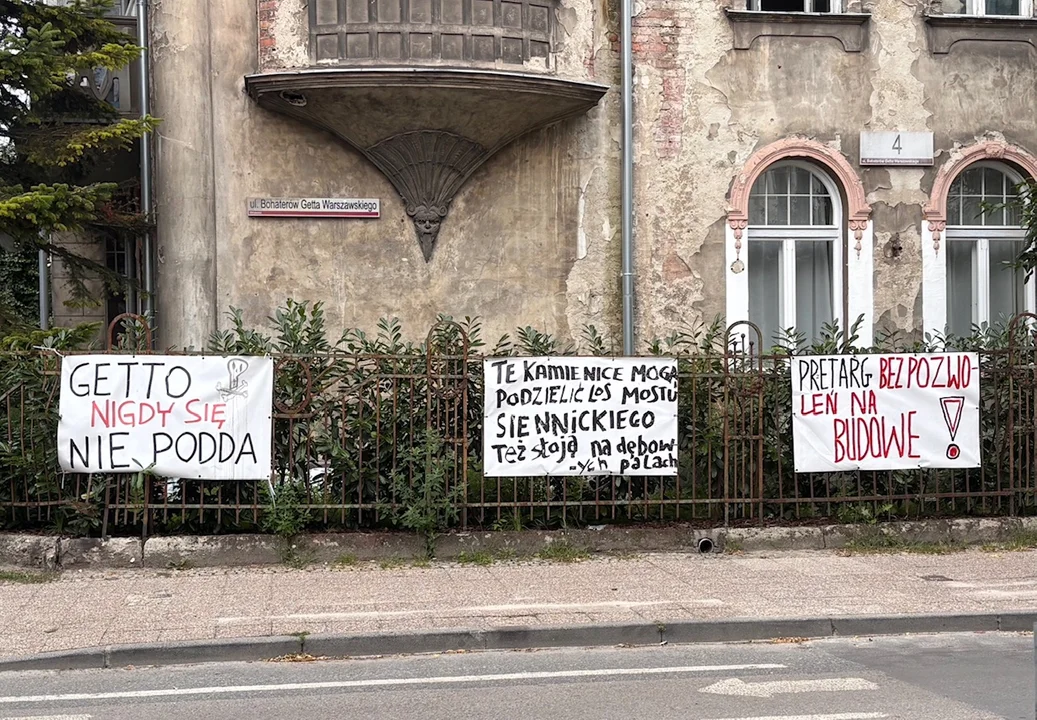 4
ul. Bohaterów Getta Warszawskiego
GETTO
NIGDY SIĘ
NIE PODDA
TE KAMIENICE MOGĄ
PODZIELIĆ LOS MOSTU
SIENNICKIEGO
Też stoją na dębow-
-ych palach
PRETARG BEZPOZWO-
LEŃ NA
BUDOWE